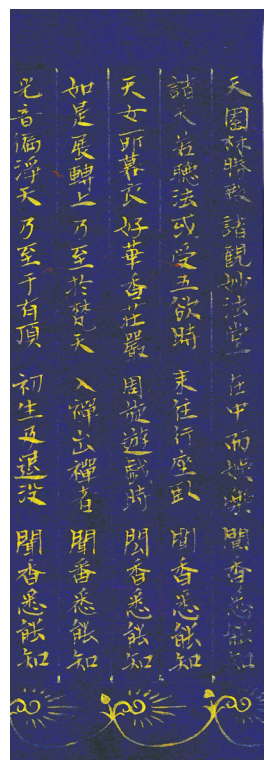 天園林勝殿 諸觀妙法堂 在中而娛樂 聞香悉能知
諸天若聽法 或受五欲時 来往行座臥 聞香悉能知
天女所著衣 好華香莊嚴 周旋遊戲時 聞香悉能知
如是展轉上 乃至於梵天 入禪出禪者 聞香悉能知
光音徧淨天 乃至于有頂 初生及退没 聞香悉能知